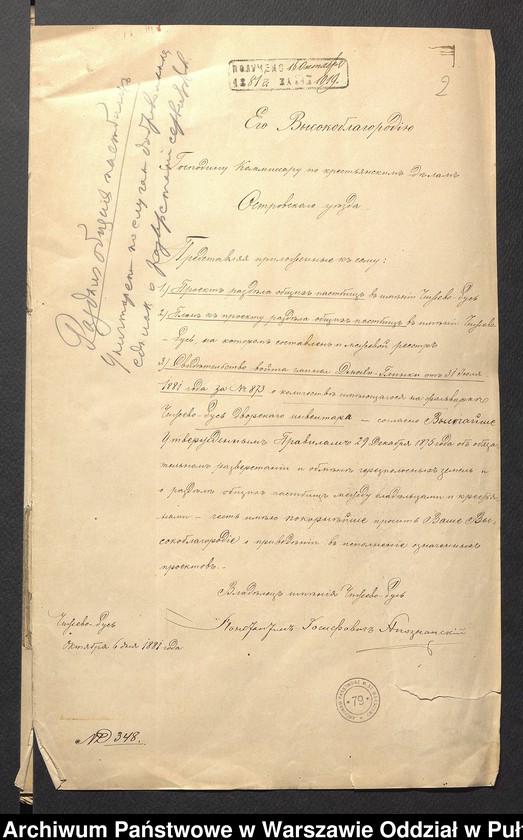 ПОЛУЧЕНО 16 Октября
1881 г. № 1919.
2
Его Высокоблагородію
Господину Коммисару по крестьянскимъ дѣламъ
Островскаго уѣзда
Раздѣлъ общихъ пастбищъ
Представляя приложенные къ сему:
1) Проектъ раздѣла общихъ пастбищъ въ имѣніи Чижево-Русь
2) Планъ къ проекту раздѣла общихъ пастбищъ въ имѣніи Чижево
- Русь, на которахъ составленъ и мѣровой реестръ
3) Свидѣтельство войта гмины отъ 31 Іюля
1881 года за № 873 о количествѣ имѣющагося на фольваркѣ
Чижево-Русь Дворскаго инвентара - согласно Высочайше
Утвержденнымъ Правиламъ 29 Декабря 1875 года объ обяза-
тельномъ разверстаніи и обмѣнѣ черезполосныхъ земель и
о раздѣлѣ общихъ пастбищъ между владѣльцами и крестья-
нами - честь имѣю покорнѣйше просить Ваше Вы-
сокоблагородіе о приведеніи въ исполненіе означенныхъ
проектовъ.-
Владѣлецъ имѣнія Чижево-Русь
Чижево-Русь
Октября 6 дня 1881 года
79
№ 348.
Archiwum Państwowe w Warszawie Oddział w Puł